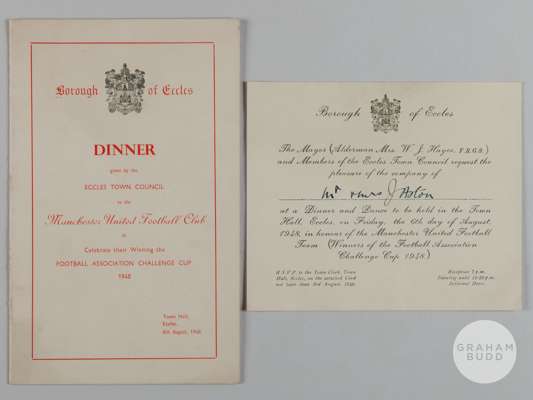 Borough of Eccles
DINNER
given by the
ECCLES TOWN COUNCIL
to the
Manchester United Football Club
to
Celebrate their Winning the
FOOTBALL ASSOCIATION CHALLENGE CUP
1948
Town Hall,
Eccles,
6th August, 1948
Borough of Eccles
The Mayor (Alderman Mrs. W. J. Hayes, F.R.G.S.)
and Members of the Eccles Town Council request the
pleasure of the company of
Mr & Mrs J Aston
at a Dinner and Dance to be held in the Town
Hall, Eccles, on Friday, the 6th day of August,
1948, in honour of the Manchester United Football
Team (Winners of the Football Association
Challenge Cup 1948)
R.S.V.P. to the Town Clerk, Town
Hall, Eccles, on the attached Card
not later than 3rd August, 1948.
Reception 7 p.m.
Dancing until
Informal Dress.
GRAHAM
BUDD